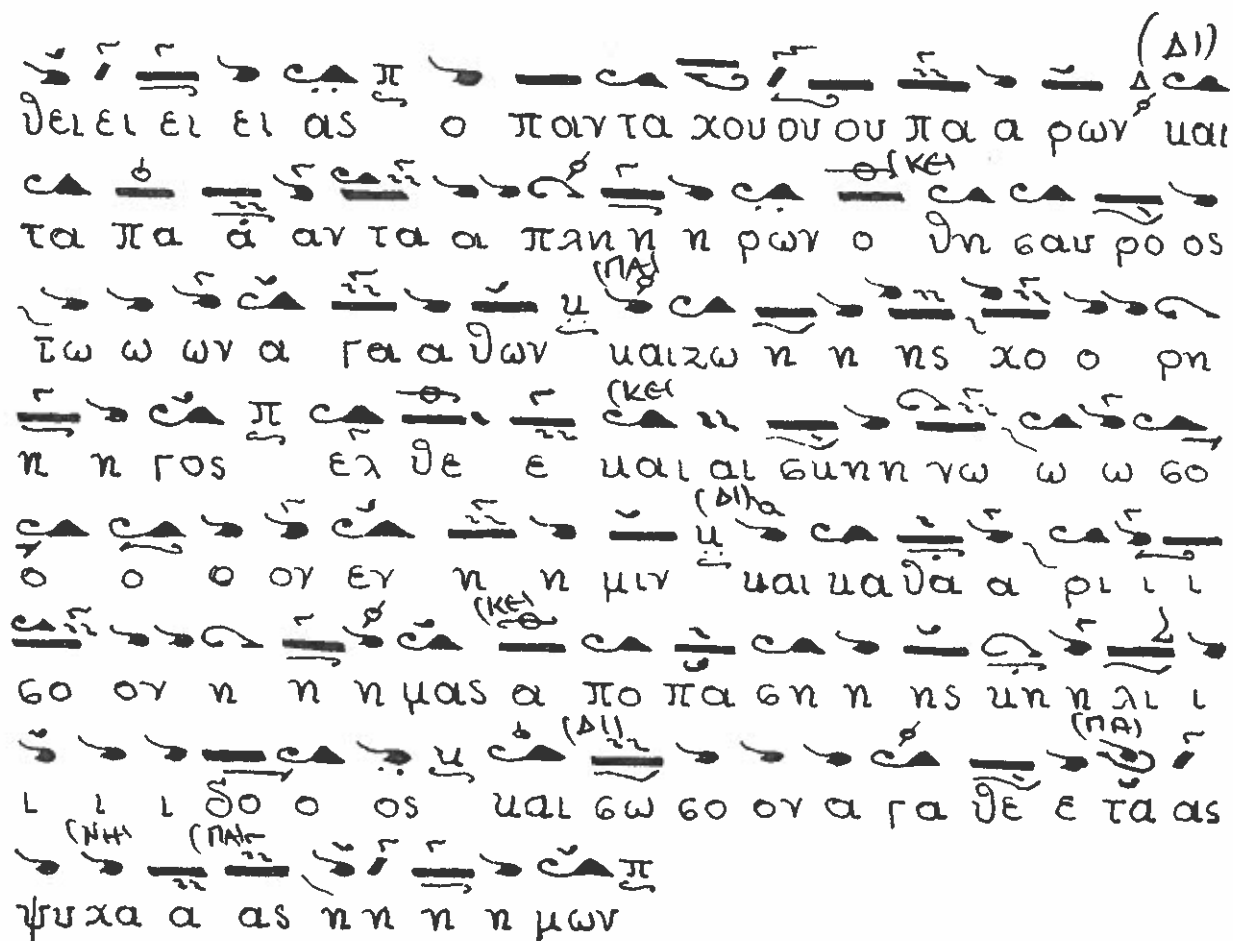 (ΔΙ)
π Δ
θει ει ει ει ας ο παν τα χου ου ου πα α ρων και
(ΚΕ)
τα πα α αν τα α πλη η η ρων ο θη σαυ ρο ος
κ (ΠΑ)
τω ω ων α γα α θων και ζω η η ης χο ο ρη
π (ΚΕ)
η η γος ελ θε ε και αι σκη η νω ω ω σο
κ (ΔΙ)
ο ο ο ον εν η η μιν και κα θα α ρι ι ι
(ΚΕ)
σο ον η η η μας α πο πα ση η ης κη η λι ι
κ (ΔΙ) (ΠΑ)
ι ι ι δο ο ος και σω σο ον α γα θε ε τα ας
(ΝΗ) (ΠΑ) π
ψυ χα α ας η η η η μων